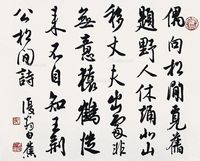 偶向松間覓舊
題野人休誦北山
移丈夫出處非
無意猿鶴從
來不自知王荊
公松間詩 復翁白蕉